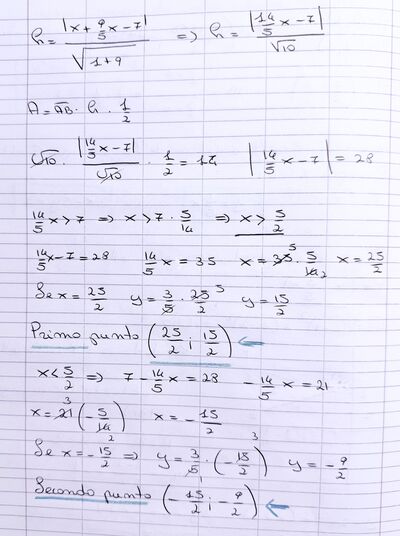 h = |x + 9/5 x - 7| / √(1+9) ⇒ h = |14/5 x - 7| / √10
A = AB · h · 1/2
√10 · |14/5 x - 7| / √10 · 1/2 = 14 |14/5 x - 7| = 28
14/5 x > 7 ⇒ x > 7 · 5/14 ⇒ x > 5/2
14/5 x - 7 = 28 14/5 x = 35 x = 35 5 · 5/14 2 x = 25/2
Se x = 25/2 y = 3/5 · 25/2 5 y = 15/2
Primo punto (25/2 ; 15/2) ←
x < 5/2 ⇒ 7 - 14/5 x = 28 - 14/5 x = 21
x = 21 3 (- 5/14 2) x = - 15/2
Se x = - 15/2 ⇒ y = 3/5 1 · (- 15/2) 3 y = - 9/2
Secondo punto (- 15/2 ; - 9/2) ←